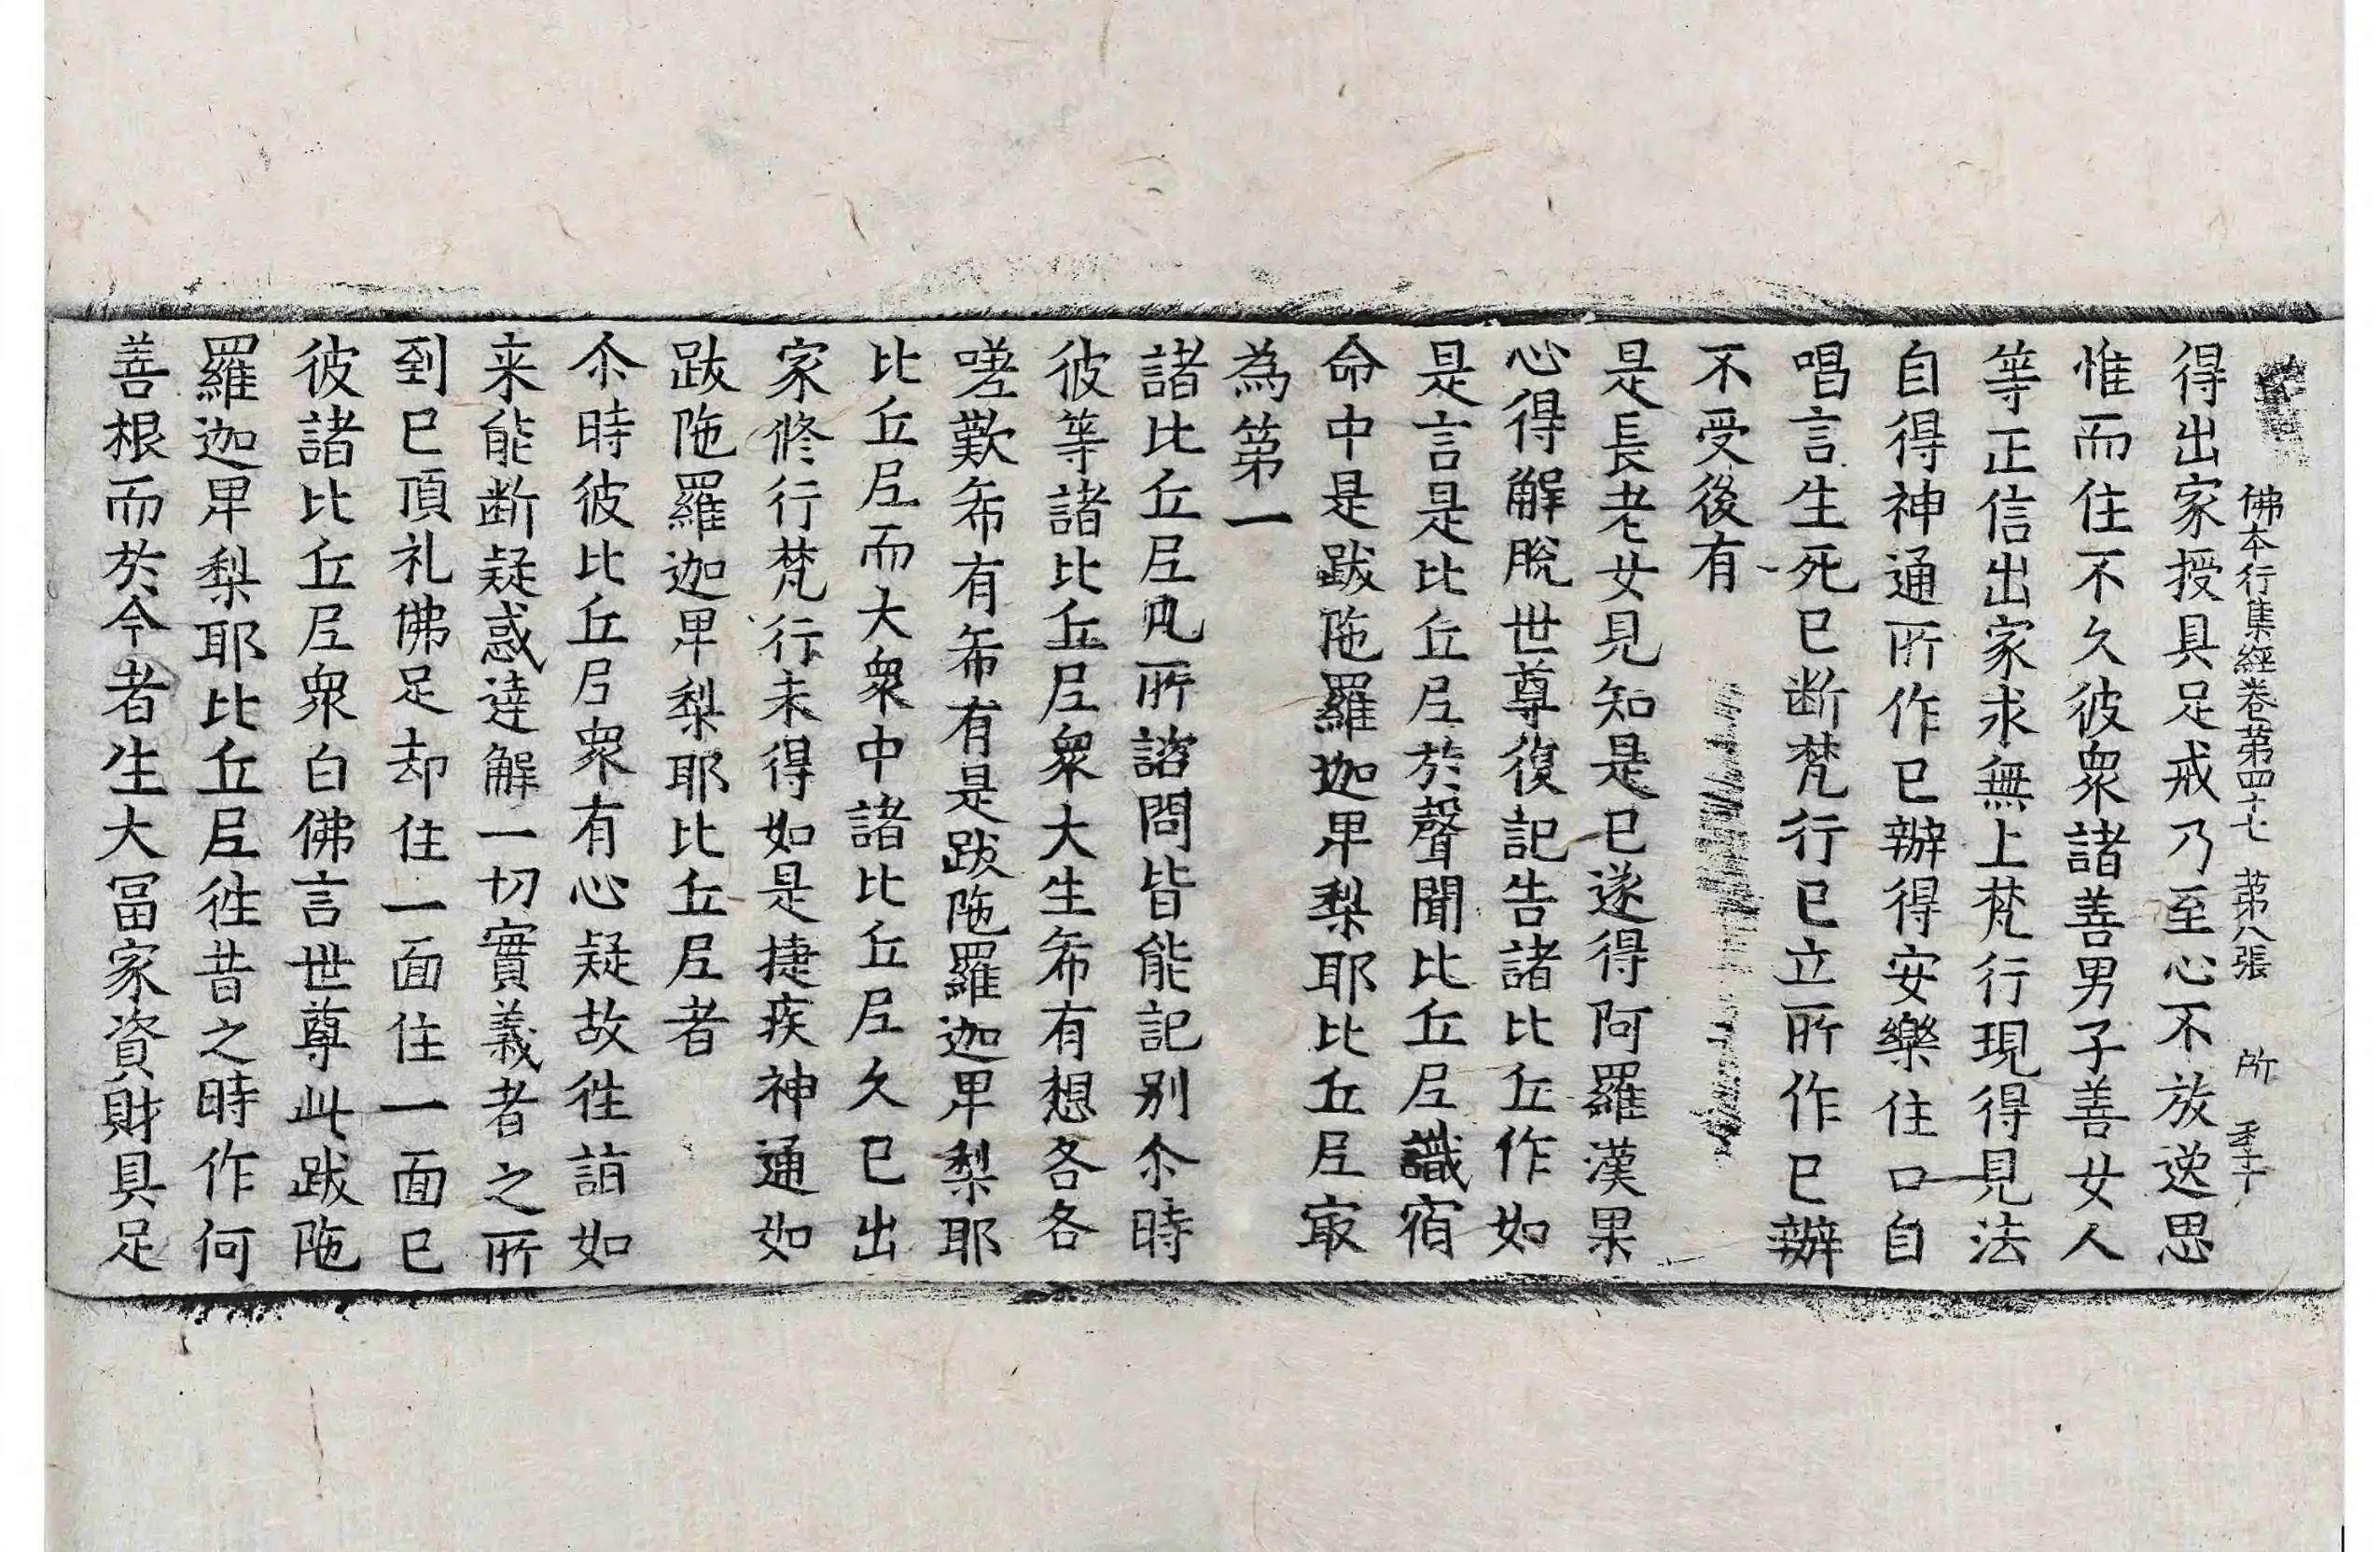 佛本行集經卷第四十七 第八張 所
得出家授具足戒乃至心不放逸思
惟而住不久彼眾諸善男子善女人
等正信出家求無上梵行現得見法
自得神通所作已辦得安樂住口自
唱言生死已断梵行已立所作已辦
不受後有
是長老女見知是已遂得阿羅漢果
心得解脫世尊復記告諸比丘作如
是言是比丘尼於聲聞比丘尼識宿
命中是跋陁羅迦卑梨耶比丘尼㝡
為第一
諸比丘尼凡所諮問皆能記别尒時
彼等諸比丘尼衆大生希有想各各
嗟歎希有希有是跋陁羅迦卑梨耶
比丘尼而大衆中諸比丘尼久已出
家修行梵行未得如是捷疾神通如
跋陁羅迦卑梨耶比丘尼者
尒時彼比丘尼眾有心疑故徃詣如
来能断疑惑達解一切實義者之所
到已頂礼佛足却住一面住一面已
彼諸比丘尼眾白佛言世尊此跋陁
羅迦卑梨耶比丘尼徃昔之時作何
善根而於今者生大冨家資財具足